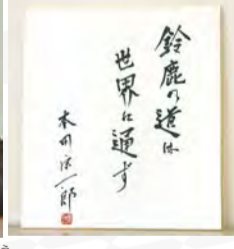 鈴鹿の道は
世界に通ず
本田宗一郎